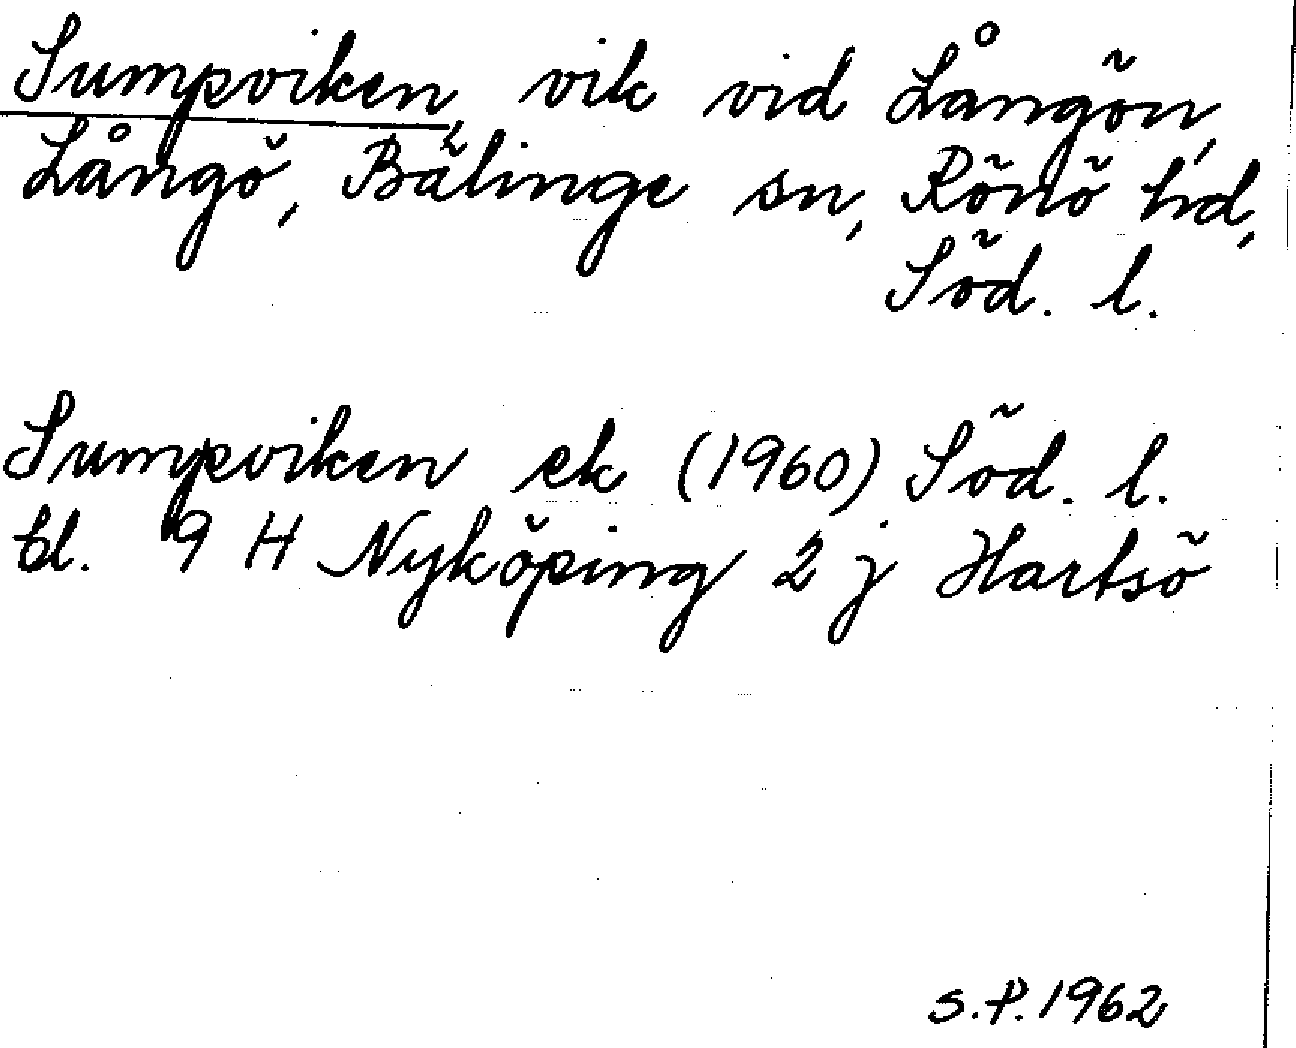 Sumpviken, vik vid Långön,
Långö, Bälinge sn, Rönö hd,
Söd. l.
Sumpviken ek (1960) Söd. l.
bl. 9 H Nyköping 2 j Hartsö
S.P. 1962